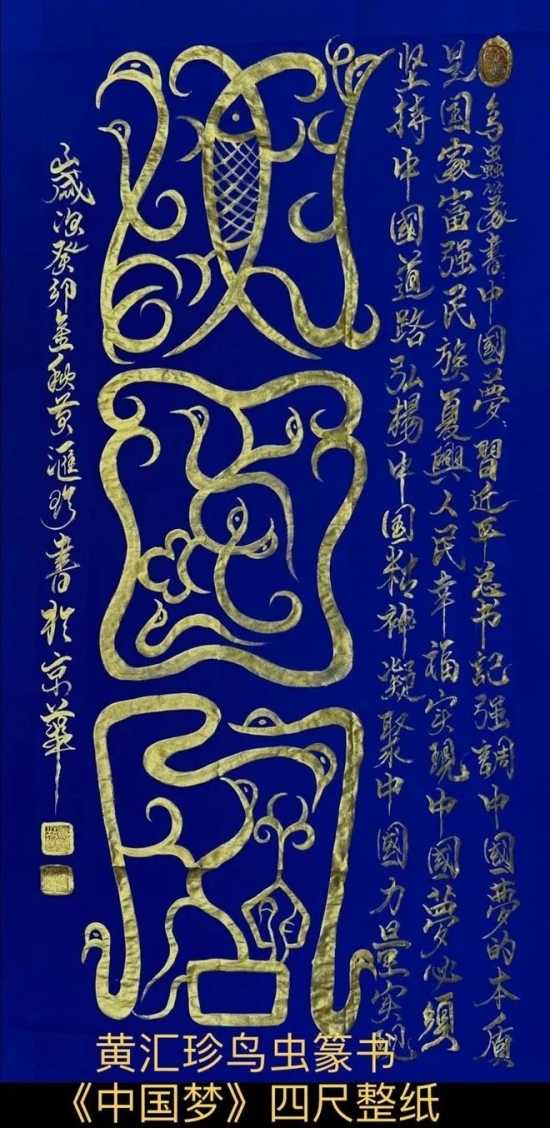 鸟蟲篆書:中國夢:習近平总书記强調中國夢的本質
是国家富强民族复興人民幸福实现中國夢必须
坚持中國道路弘揚中国精神凝聚中國力量实现
歲次癸卯金秋黄滙珍書於京華
黄汇珍鸟虫篆书
《中国梦》四尺整纸